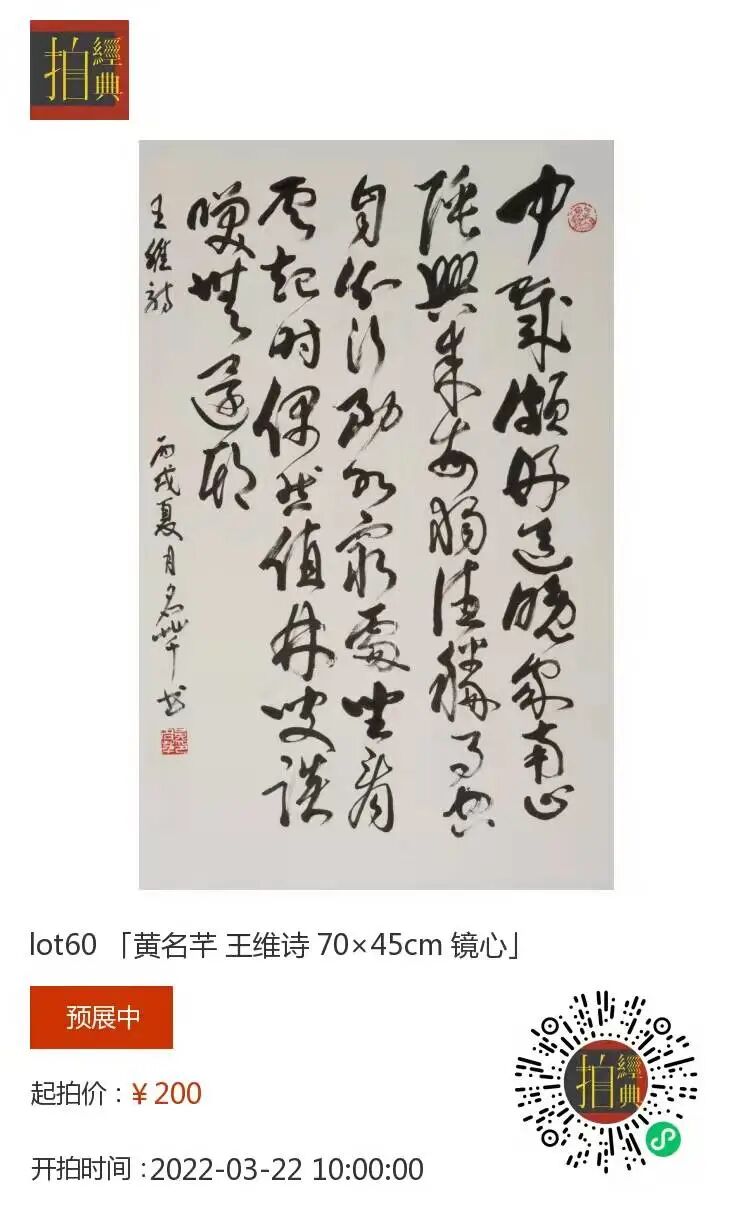 經典拍
中歲頗好道晚家南山
陲興来每獨往勝事空
自知行到水窮處坐看
雲起时偶然值林叟談
咲無還期
王維詩
丙戌夏月名芊书
lot60 「黄名芊 王维诗 70×45cm 镜心」
预展中
起拍价：¥ 200
开拍时间：2022-03-22 10:00:00
經典拍